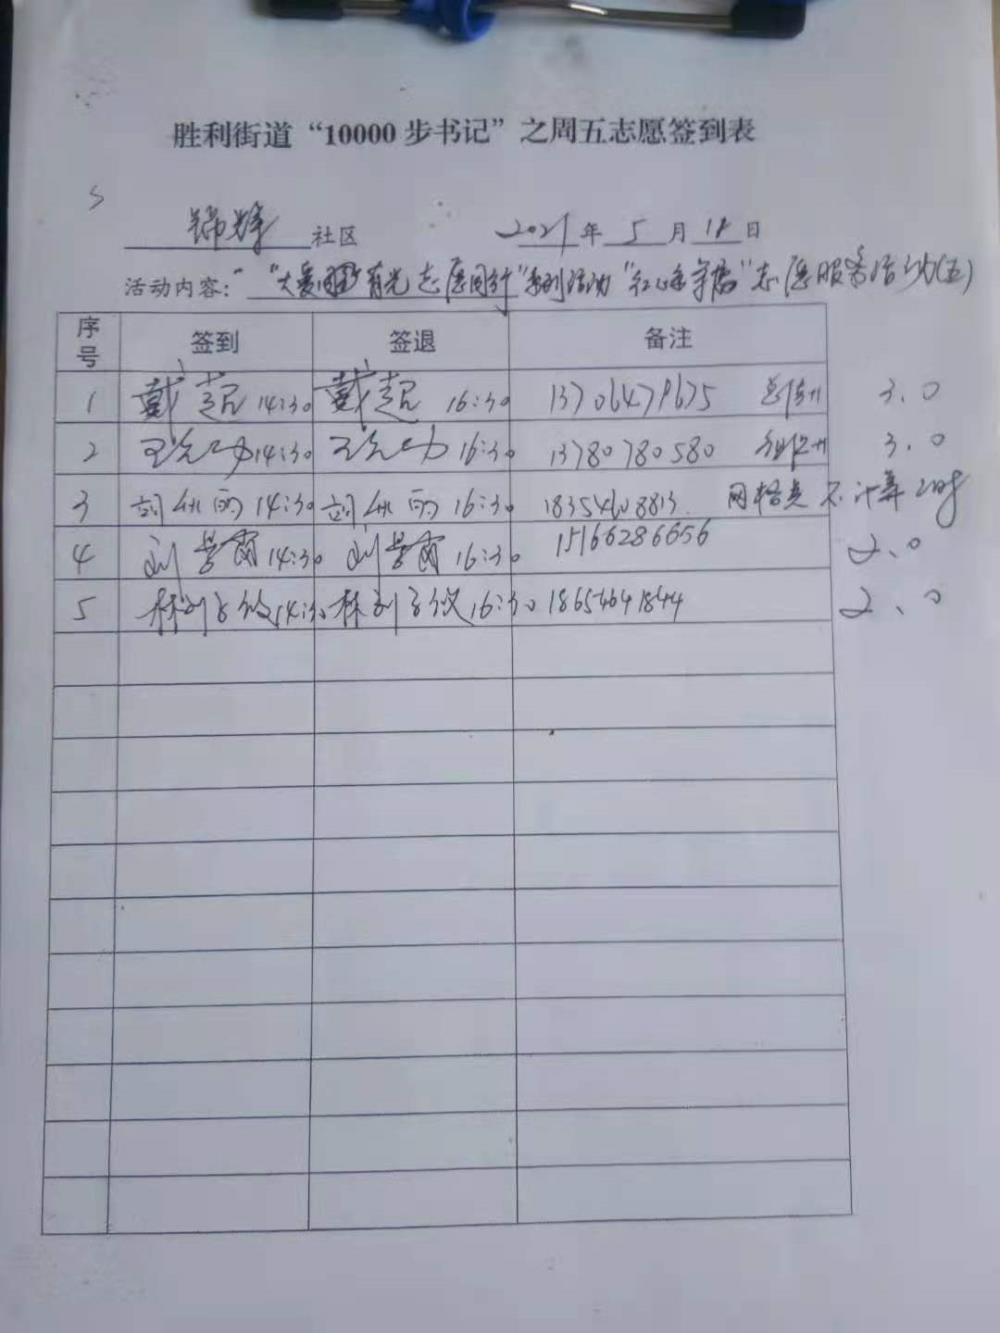 胜利街道“10000步书记”之周五志愿签到表
锦华社区 2021年5月18日
活动内容：“大爱 有光 志愿同行”系列活动“红心 幸福”志愿服务活动(五)
序号 签到 签退 备注
1 戴超 14:30 戴超 16:30 13706479675 3.0
2 王 功 14:30 王 功 16:30 13780780580 3.0
3 14:30 16:30 18354608813 网格员 不计算工时
4 刘 14:30 刘 16:30 15166286656 2.0
5 林 14:30 林 16:30 18654641844 2.0